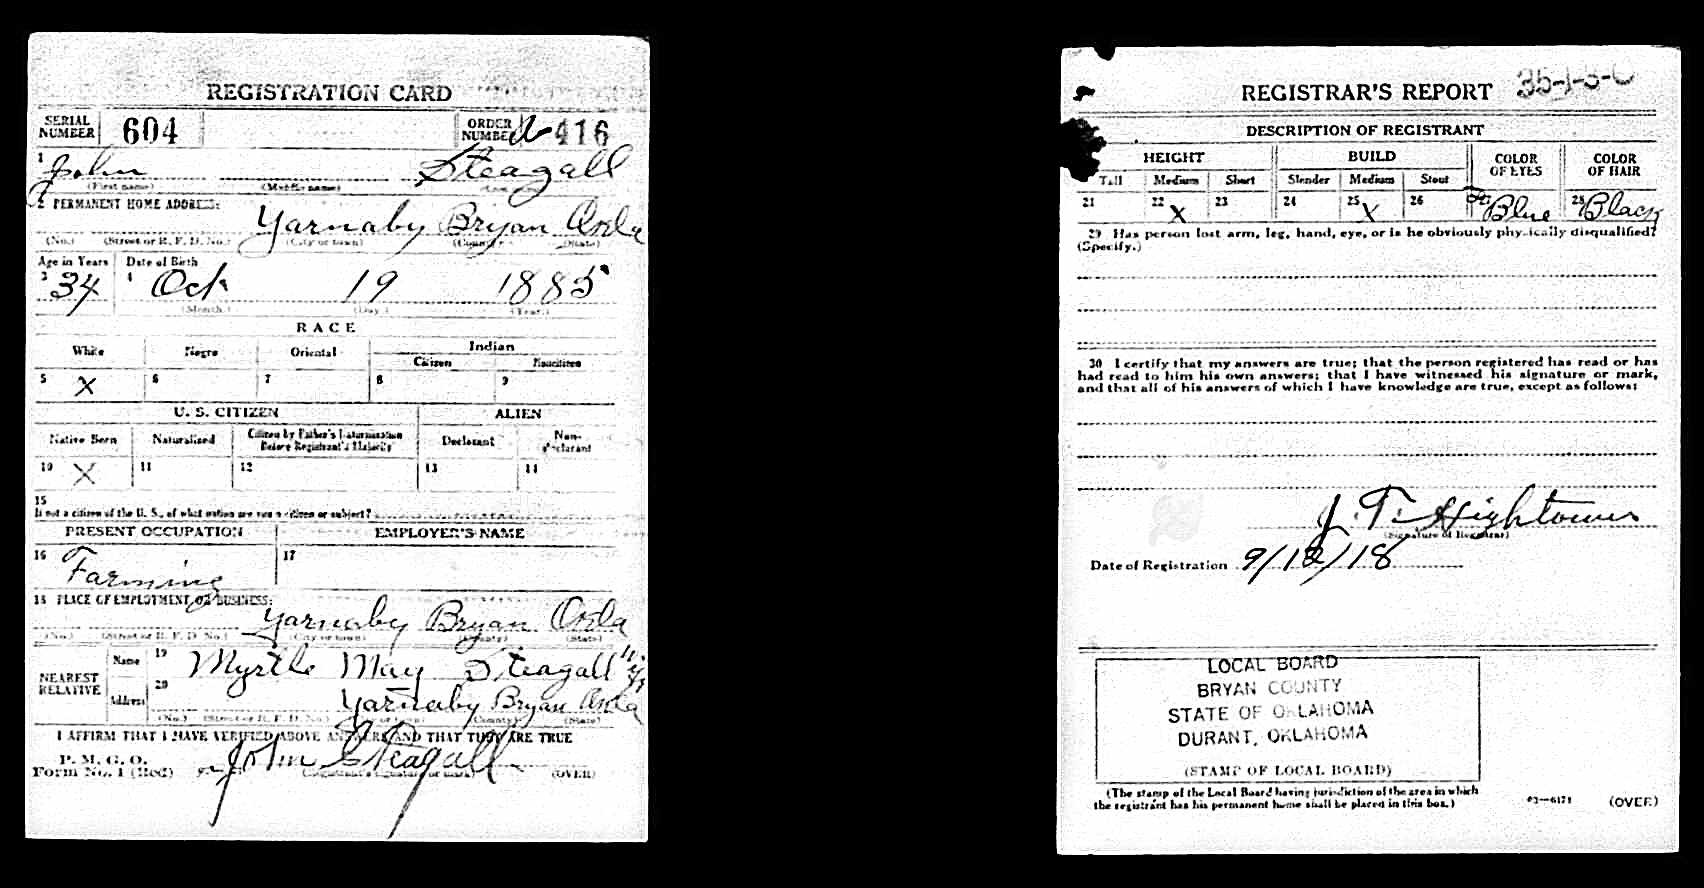 REGISTRATION CARD
SERIAL NUMBER 604 ORDER NUMBER 416
1 John Steagall
(First name) (Middle name)
2 PERMANENT HOME ADDRESS:
Yarnaby Bryan Okla
(No.) (Street or R. F. D. No.) (City or town) (County) (State)
Age in Years Date of Birth
3 34 4 Oct 19 1885
(Month.) (Day.) (Year.)
RACE
White Negro Oriental Indian
Citizen Noncitizen
5 X 6 7 8 9
U. S. CITIZEN ALIEN
Native Born Naturalized Citizen by Father's Naturalization Before Registrant's Majority Declarant Non-declarant
10 X 11 12 13 14
15
If not a citizen of the U. S., of what nation are you a citizen or subject?
PRESENT OCCUPATION EMPLOYER'S NAME
16 Farming 17
18 PLACE OF EMPLOYMENT OR BUSINESS:
Yarnaby Bryan Okla
(No.) (Street or R. F. D. No.) (City or town) (County) (State)
NEAREST RELATIVE Name 19 Myrtle May Steagall
Address 20 Yarnaby Bryan Okla
(No.) (Street or R. F. D. No.) (City or town) (County) (State)
I AFFIRM THAT I HAVE VERIFIED ABOVE ANSWERS AND THAT THEY ARE TRUE
P. M. G. O.
Form No. 1 (Red) John Steagall
(Registrant's signature or mark) (OVER)
REGISTRAR'S REPORT 35-1-3-C
DESCRIPTION OF REGISTRANT
HEIGHT BUILD COLOR OF EYES COLOR OF HAIR
Tall Medium Short Slender Medium Stout
21 22 X 23 24 25 X 26 27 Blue 28 Black
29 Has person lost arm, leg, hand, eye, or is he obviously physically disqualified?
(Specify.)
30 I certify that my answers are true; that the person registered has read or has
had read to him his own answers; that I have witnessed his signature or mark,
and that all of his answers of which I have knowledge are true, except as follows:
J. T. Hightower
(Signature of Registrar)
Date of Registration 9/12/18
LOCAL BOARD
BRYAN COUNTY
STATE OF OKLAHOMA
DURANT, OKLAHOMA
(STAMP OF LOCAL BOARD)
(The stamp of the Local Board having jurisdiction of the area in which
the registrant has his permanent home shall be placed in this box.)
03—6171 (OVER)